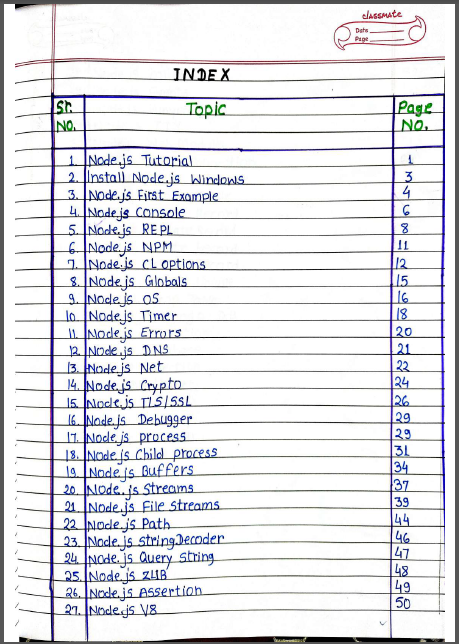 classmate
Date
Page
INDEX
Sr. No. Topic Page No.
1. Node.js Tutorial 1
2. Install Node.js Windows 3
3. Node.js First Example 4
4. Node.js Console 6
5. Node.js REPL 8
6. Node.js NPM 11
7. Node.js CL options 12
8. Node.js Globals 15
9. Node.js OS 16
10. Node.js Timer 18
11. Node.js Errors 20
12. Node.js DNS 21
13. Node.js Net 22
14. Node.js Crypto 24
15. Node.js TLS/SSL 26
16. Node.js Debugger 29
17. Node.js process 29
18. Node.js Child process 31
19. Node.js Buffers 34
20. Node.js Streams 37
21. Node.js File Streams 39
22. Node.js Path 44
23. Node.js StringDecoder 46
24. Node.js Query string 47
25. Node.js ZLIB 48
26. Node.js Assertion 49
27. Node.js V8 50